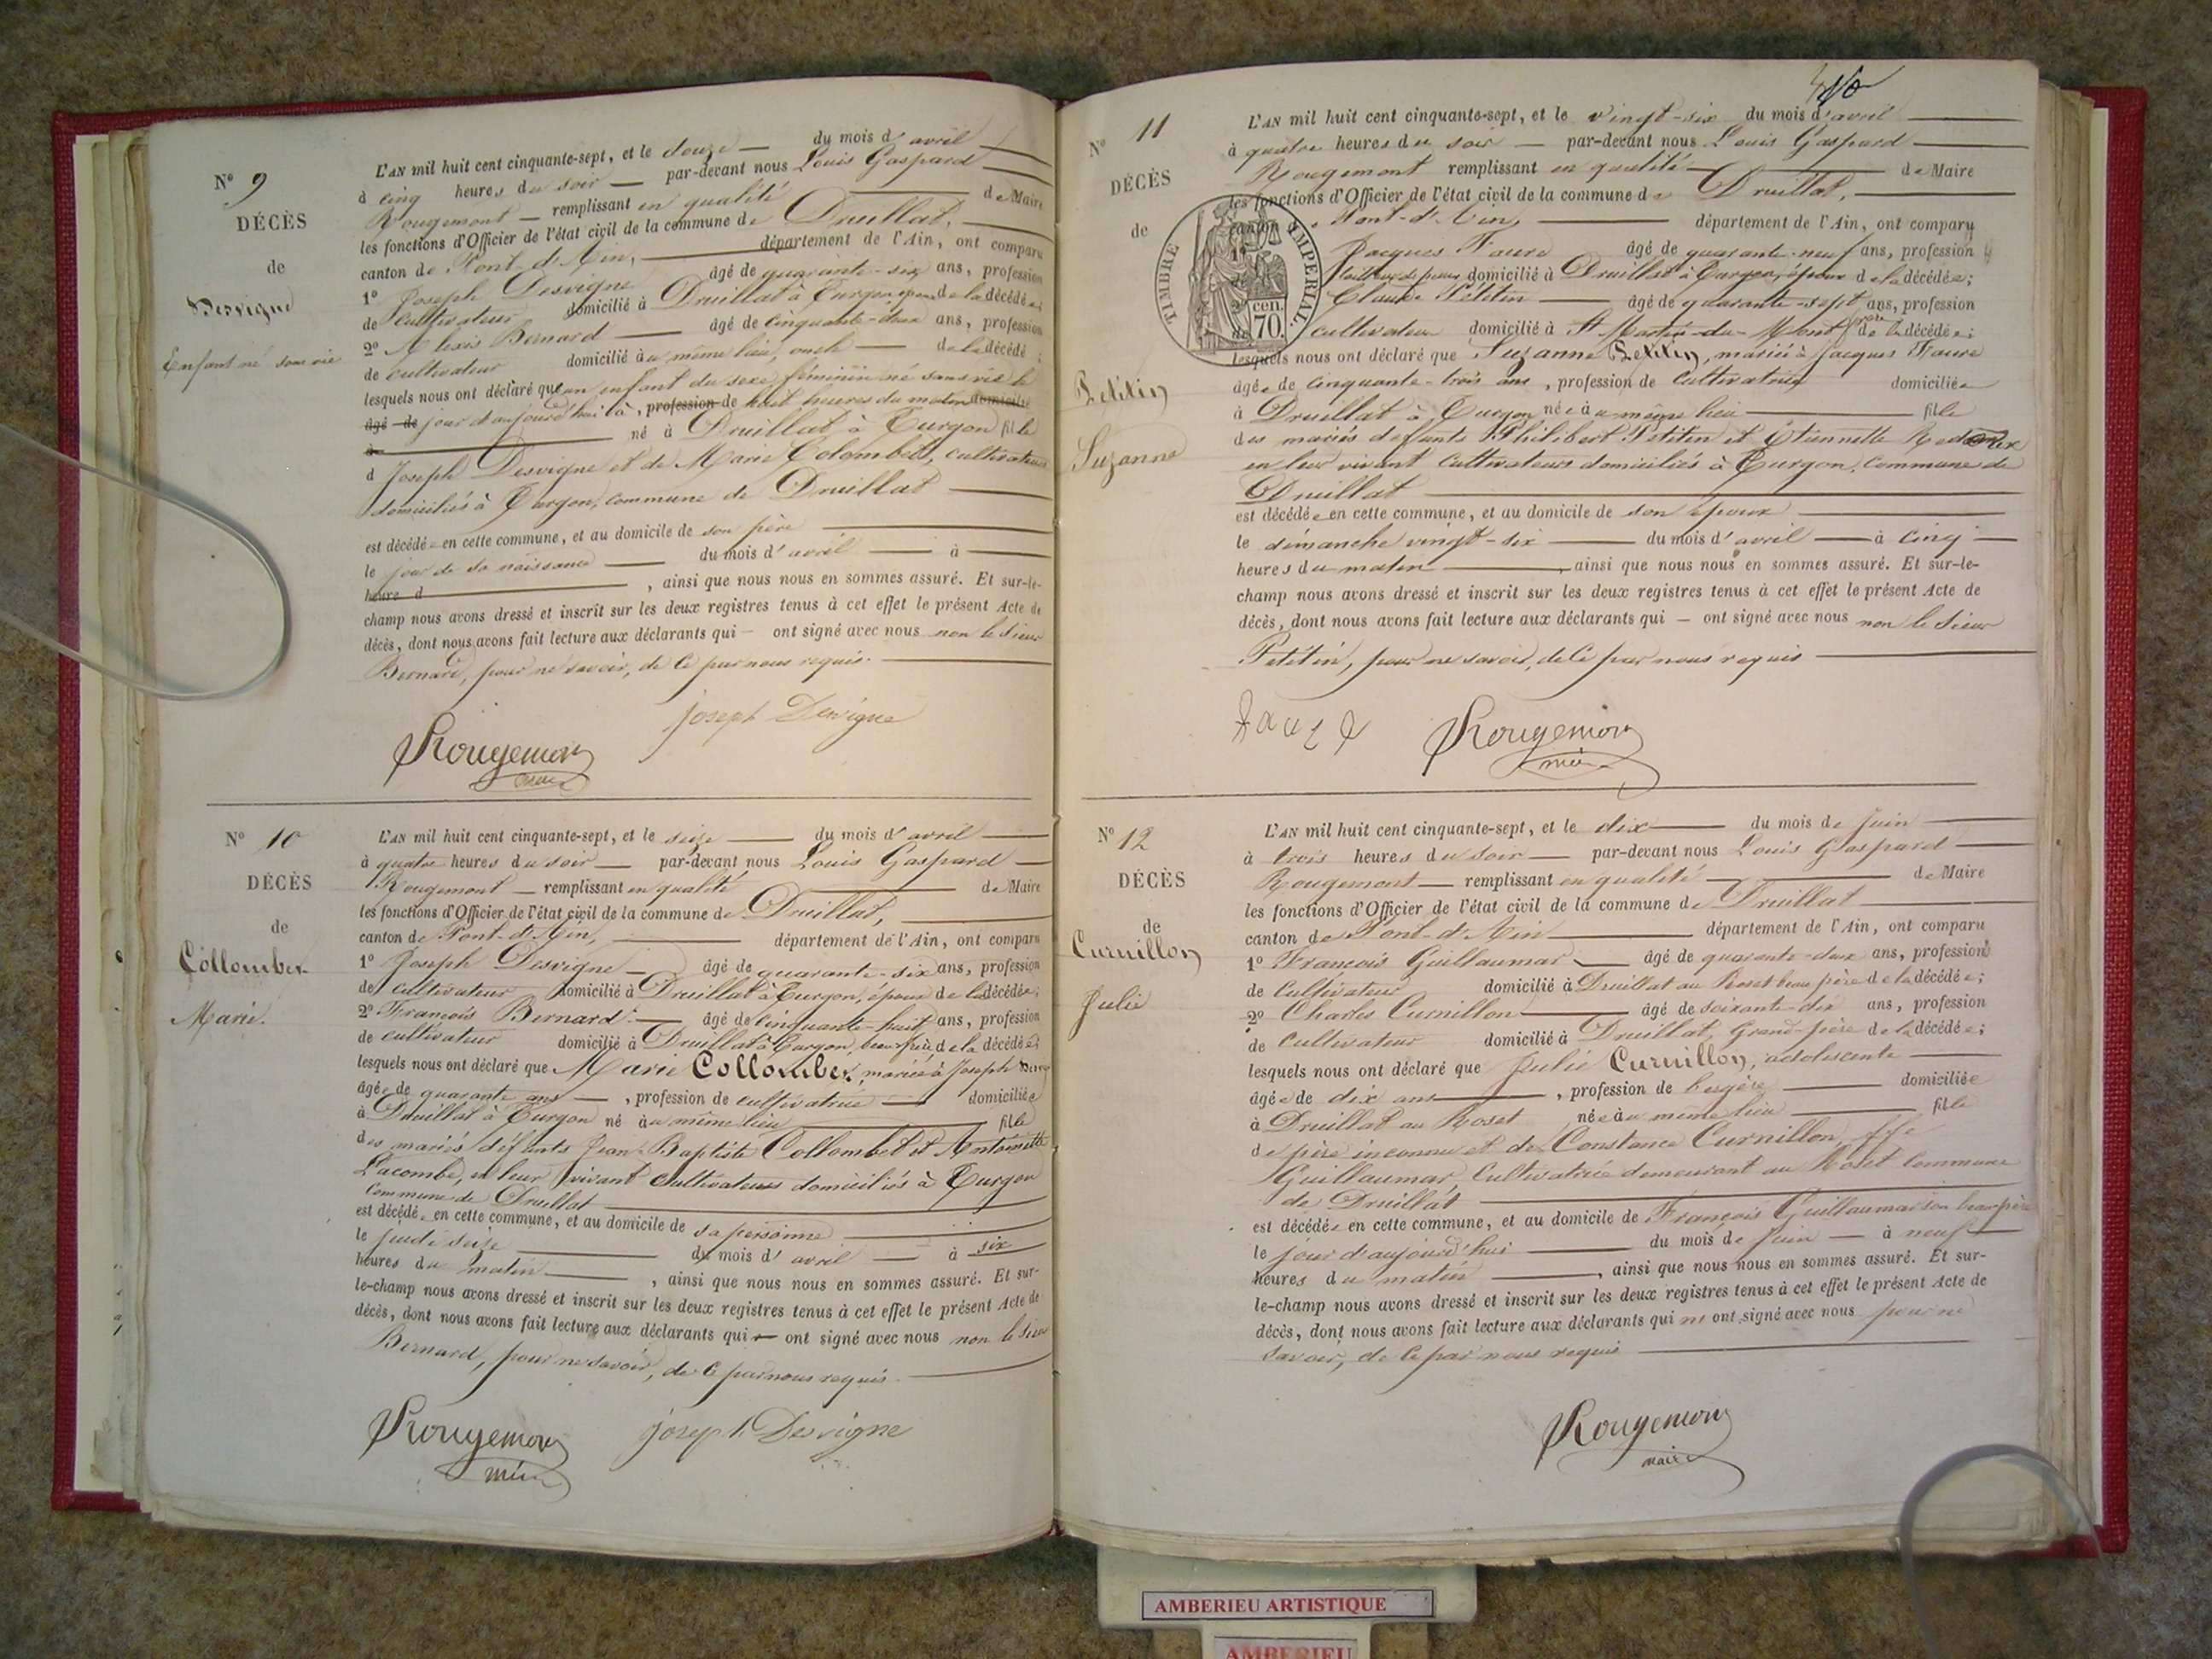 N° 9
DÉCÈS
de
Desvigne
Enfant né sans vie
L'AN mil huit cent cinquante-sept, et le douze du mois d'avril
à cinq heures du soir par-devant nous Louis Gaspard
Rougemont remplissant en qualité de Maire
les fonctions d'Officier de l'état civil de la commune de Druillat,
canton de Pont-d'Ain, département de l'Ain, ont comparu
1° Joseph Desvigne âgé de quarante-six ans, profession
de cultivateur domicilié à Druillat à Turgon, de la décédée;
2° Alexis Bernard âgé de cinquante-deux ans, profession
de cultivateur domicilié au même lieu, oncle de la décédé;
lesquels nous ont déclaré que un enfant du sexe féminin né sans vie le
âgé de jour d'aujourd'hui à, profession de huit heures du matin domicilié
à né à Druillat à Turgon fille
d Joseph Desvigne et de Marie Colombet, cultivateurs
domiciliés à Turgon, commune de Druillat
est décédé en cette commune, et au domicile de son père
le jour de sa naissance du mois d'avril à
heure d , ainsi que nous nous en sommes assuré. Et sur-le-
champ nous avons dressé et inscrit sur les deux registres tenus à cet effet le présent Acte de
décès, dont nous avons fait lecture aux déclarants qui ont signé avec nous non le sieur
Bernard, pour ne savoir, de ce par nous requis.
Rougemont
maire
Joseph Desvigne
N° 10
DÉCÈS
de
Collombet
Marie.
L'AN mil huit cent cinquante-sept, et le seize du mois d'avril
à quatre heures du soir par-devant nous Louis Gaspard
Rougemont remplissant en qualité de Maire
les fonctions d'Officier de l'état civil de la commune de Druillat,
canton de Pont-d'Ain, département de l'Ain, ont comparu
1° Joseph Desvigne âgé de quarante-six ans, profession
de cultivateur domicilié à Druillat à Turgon, époux de la décédée;
2° François Bernard âgé de cinquante-huit ans, profession
de cultivateur domicilié à Druillat à Turgon, beau-frère de la décédée;
lesquels nous ont déclaré que Marie Collombet, mariée à Joseph Desvig
âgée de quarante ans, profession de cultivatrice domiciliée
à Druillat à Turgon né au même lieu fille
des mariés défunts Jean-Baptiste Collombet et Antoinette
Lacombe, en leur vivant cultivateurs domiciliés à Turgon
commune de Druillat
est décédée en cette commune, et au domicile de sa personne
le jeudi seize du mois d'avril à six
heures du matin, ainsi que nous nous en sommes assuré. Et sur-
le-champ nous avons dressé et inscrit sur les deux registres tenus à cet effet le présent Acte de
décès, dont nous avons fait lecture aux déclarants qui ont signé avec nous non le sieur
Bernard, pour ne savoir, de ce par nous requis.
Rougemont
maire
Joseph Desvigne
N° 11
DÉCÈS
de
Petitin
Suzanne
TIMBRE IMPERIAL.
70 cen.
L'AN mil huit cent cinquante-sept, et le vingt-six du mois d'avril
à quatre heures du soir par-devant nous Louis Gaspard
Rougemont remplissant en qualité de Maire
les fonctions d'Officier de l'état civil de la commune de Druillat,
canton de Pont-d'Ain, département de l'Ain, ont comparu
Jacques Faure âgé de quarante-neuf ans, profession
domicilié à Druillat à Turgon, époux de la décédée;
Claude Petitin âgé de quarante-sept ans, profession
de cultivateur domicilié à St Martin-du-Mont frère de la décédée;
lesquels nous ont déclaré que Suzanne Petitin, mariée à Jacques Faure
âgée de cinquante-trois ans, profession de cultivatrice domiciliée
à Druillat à Turgon née au même lieu fille
des mariés défunts Philibert Petitin et Etiennette
en leur vivant cultivateurs domiciliés à Turgon, commune de
Druillat
est décédée en cette commune, et au domicile de son époux
le dimanche vingt-six du mois d'avril à cinq
heures du matin, ainsi que nous nous en sommes assuré. Et sur-le-
champ nous avons dressé et inscrit sur les deux registres tenus à cet effet le présent Acte de
décès, dont nous avons fait lecture aux déclarants qui ont signé avec nous non le sieur
Petitin, pour ne savoir, de ce par nous requis
Faure
Rougemont
maire
N° 12
DÉCÈS
de
Curnillon
Julie
L'AN mil huit cent cinquante-sept, et le dix du mois de juin
à trois heures du soir par-devant nous Louis Gaspard
Rougemont remplissant en qualité de Maire
les fonctions d'Officier de l'état civil de la commune de Druillat
canton de Pont-d'Ain département de l'Ain, ont comparu
1° François Guillaumar âgé de quarante-deux ans, profession
de cultivateur domicilié à Druillat au Roset beau père de la décédée;
2° Charles Curnillon âgé de soixante-dix ans, profession
de cultivateur domicilié à Druillat, Grand-père de la décédée;
lesquels nous ont déclaré que Julie Curnillon, adolescente
âgée de dix ans, profession de bergère domiciliée
à Druillat au Roset née au même lieu fille
de père inconnu et de Constance Curnillon, fe
Guillaumar, cultivatrice demeurant au Roset commune
de Druillat
est décédée en cette commune, et au domicile de François Guillaumar son beau-père
le jour d'aujourd'hui du mois de juin à neuf
heures du matin, ainsi que nous nous en sommes assuré. Et sur-
le-champ nous avons dressé et inscrit sur les deux registres tenus à cet effet le présent Acte de
décès, dont nous avons fait lecture aux déclarants qui ne ont signé avec nous pour ne
savoir, de ce par nous requis
Rougemont
maire
AMBERIEU ARTISTIQUE
AMBERIEU